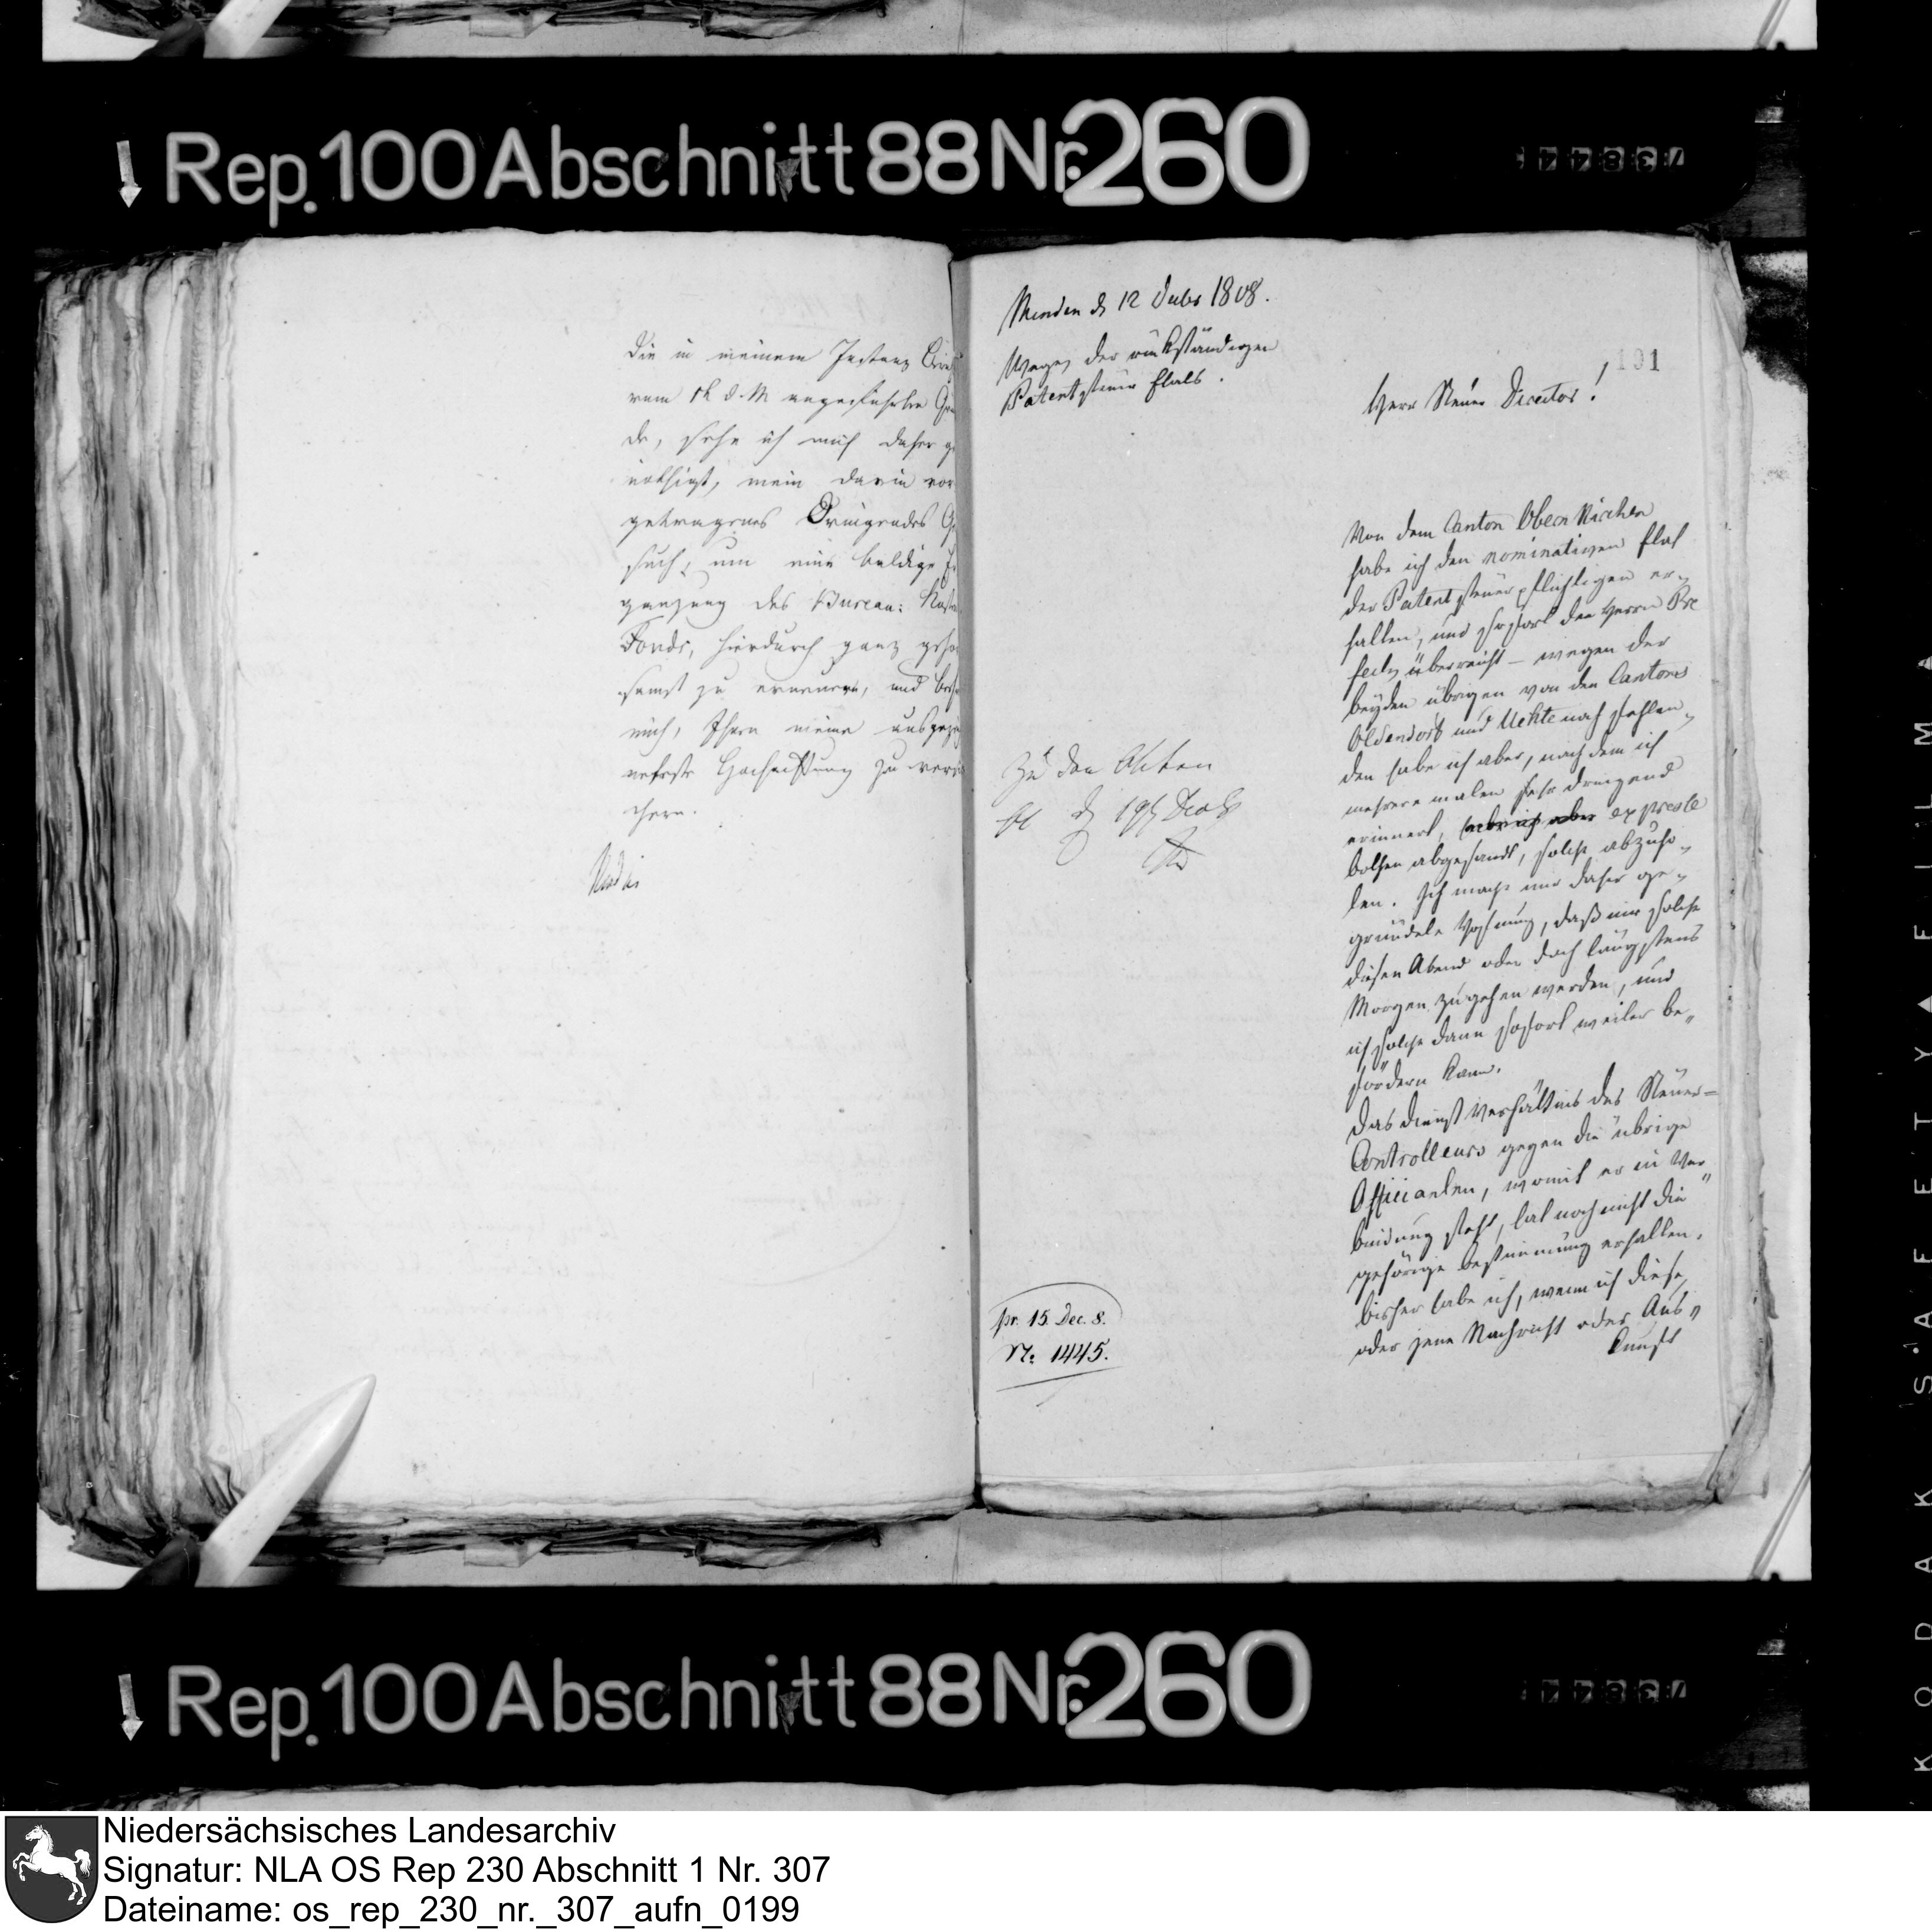 Rep. 100 Abschnitt 88 Nr. 260
die in meinem
vom d. M. angeführten
de, sehe ich mich daher ge
nöthigt, mein darin vor
getragenes dringendes Ge
such, um eine baldige Er
gänzung des Bureau: Kosten
Fonds, hierdurch ganz gehor
samst zu erneuern, und
mich, Ihnen meine ausgezeich
neteste Hochachtung zu versi
chern.
Minden d 12 Decbr 1808.
Wegen der rückständigen
Patentsteuer Etats.
191
Herr Steuer Director!
Von dem Canton Obern Kirchen
habe ich den nominativen Etat
der Patentsteuerpflichtigen er„
halten, und sofort dem Herrn Pre
fect überreicht – wegen der
beyden übrigen von den Cantons
Oldendorf und Uchte noch fehlen„
den habe ich aber, nachdem ich
mehrere malen sehr dringend
erinnert, habe ich aber expresse
Bothen abgesandt, solche abzuho„
len. Ich mache mir daher ge„
gründete Hofnung, daß mir solche
diesen Abend oder doch längstens
Morgen zugehen werden, und
ich solche dann sofort weiter be„
fördern kann.
Das Dienst Verhältnis des Steuer=
Controlleurs gegen die übrige
Officianten, womit er in Ver„
bindung steht, hat noch nicht die
gehörige Bestimmung erhalten.
bisher habe ich, wenn ich diese
oder jene Nachricht oder Aus„
kunft
Zu den Akten
pr. 15. Dec. 8.
N: 1445.
Rep. 100 Abschnitt 88 Nr. 260
KODAK SAFETY FILM
Niedersächsisches Landesarchiv
Signatur: NLA OS Rep 230 Abschnitt 1 Nr. 307
Dateiname: os_rep_230_nr._307_aufn_0199